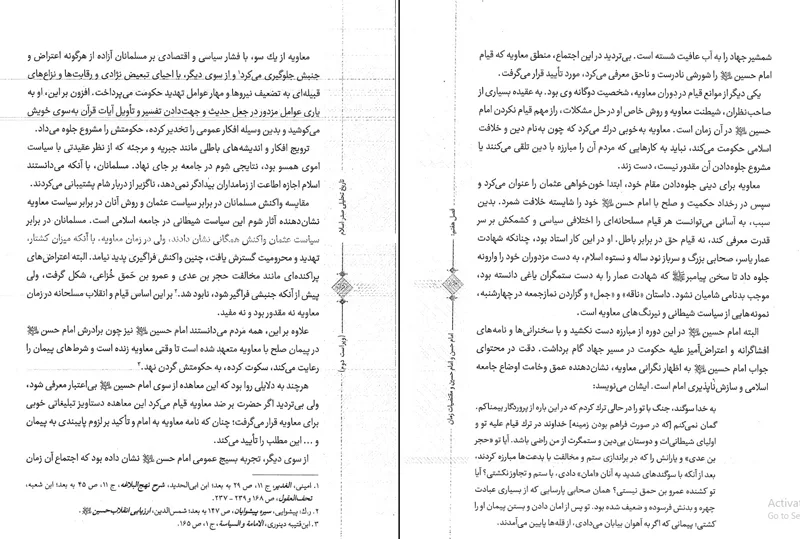 معاویه از یک سو، با فشار سیاسی و اقتصادی بر مسلمانان آزاده از هرگونه اعتراض و
جنبش جلوگیری می‌کرد۱ و از سوی دیگر، با احیای تبعیض نژادی و رقابت‌ها و نزاع‌های
قبیله‌ای به تضعیف نیروها و مهار عوامل تهدید حکومت می‌پرداخت. افزون بر این، او به
یاری عوامل مزدور در جعل حدیث و جهت‌دادن تفسیر و تأویل آیات قرآن به‌سوی خویش
می‌کوشید و بدین وسیله افکار عمومی را تخدیر کرده، حکومتش را مشروع جلوه می‌داد.
ترویج افکار و اندیشه‌های باطلی مانند جبریه و مرجئه که از نظر عقیدتی با سیاست
اموی همسو بود، نتایجی شوم در جامعه بر جای نهاد. مسلمانان، با آنکه می‌دانستند
اسلام اجازه اطاعت از زمامداران بیدادگر نمی‌دهد، ناگزیر از دربار شام پشتیبانی می‌کردند.
مقایسه واکنش مسلمانان در برابر سیاست عثمان و روش آنان در برابر سیاست معاویه
نشان‌دهنده آثار شوم این سیاست شیطانی در جامعه اسلامی است. مسلمانان در برابر
سیاست عثمان واکنش همگانی نشان دادند، ولی در زمان معاویه، با آنکه میزان کشتار،
تهدید و محرومیت گسترش یافت، چنین واکنش فراگیری پدید نیامد. البته اعتراض‌های
پراکنده‌ای مانند مخالفت حجر بن عدی و عمرو بن حمق خُزاعی، شکل گرفت، ولی
پیش از آنکه جنبشی فراگیر شود، نابود شد.۲ بر این اساس قیام و انقلاب مسلحانه در زمان
معاویه نه مقدور بود و نه مفید.
علاوه بر این، همه مردم می‌دانستند امام حسین نیز چون برادرش امام حسن
در پیمان صلح با معاویه متعهد شده است تا وقتی معاویه زنده است و شرط‌های پیمان را
رعایت می‌کند، سکوت کرده، به حکومتش گردن نهد.۳
هرچند به دلایلی روا بود که این معاهده از سوی امام حسین بی‌اعتبار معرفی شود،
ولی بی‌تردید اگر حضرت بر ضد معاویه قیام می‌کرد این معاهده دستاویز تبلیغاتی خوبی
برای معاویه قرار می‌گرفت؛ چنان که نامه معاویه به امام و تأکید بر لزوم پایبندی به پیمان
و ... این مطلب را تأیید می‌کند.
از سوی دیگر، تجربه بسیج عمومی امام حسن نشان داده بود که اجتماع آن زمان
۱. امینی، الغدیر، ج ۱۱، ص ۲۹ به بعد؛ ابن ابی‌الحدید، شرح نهج‌البلاغه، ج ۱۱، ص ۴۵ به بعد؛ ابن شعبه،
تحف‌العقول، ص ۱۶۸ و ۲۳۹ – ۲۳۷.
۲. ر.ک: پیشوایی، سیره پیشوایان، ص ۱۴۷ به بعد؛ شمس‌الدین، ارزیابی انقلاب حسین.
۳. ابن‌قتیبه دینوری، الامامة و السیاسة، ج ۱، ص ۱۶۵.
تاریخ تحلیلی صدر اسلام
(ویراست دوم)
شمشیر جهاد را به آب عافیت شسته است. بی‌تردید در این اجتماع، منطق معاویه که قیام
امام حسین را شورشی نادرست و ناحق معرفی می‌کرد، مورد تأیید قرار می‌گرفت.
یکی دیگر از موانع قیام در دوران معاویه، شخصیت دوگانه وی بود. به عقیده بسیاری از
صاحب‌نظران، شیطنت معاویه و روش خاص او در حل مشکلات، راز مهم قیام نکردن امام
حسین در آن زمان است. معاویه به‌خوبی درک می‌کرد که چون به‌نام دین و خلافت
اسلامی حکومت می‌کند، نباید به کارهایی که مردم آن را مبارزه با دین تلقی می‌کنند یا
مشروع جلوه‌دادن آن مقدور نیست، دست زند.
معاویه برای دینی جلوه‌دادن مقام خود، ابتدا خون‌خواهی عثمان را عنوان می‌کرد و
سپس در رخداد حکمیت و صلح با امام حسن خود را شایسته خلافت شمرد. بدین
سبب، به آسانی می‌توانست هر قیام مسلحانه‌ای را اختلافی سیاسی و کشمکش بر سر
قدرت معرفی کند، نه قیام حق در برابر باطل. او در این کار استاد بود، چنانکه شهادت
عمار یاسر، صحابی بزرگ و سرباز نود ساله و نستوه اسلام، به دست مزدوران خود را وارونه
جلوه داد تا سخن پیامبر که شهادت عمار را به دست ستمگران یاغی دانسته بود،
موجب بدنامی شامیان نشود. داستان «ناقه» و «جمل» و گزاردن نمازجمعه در چهارشنبه،
نمونه‌هایی از سیاست شیطانی و نیرنگ‌های معاویه است.
البته امام حسین در این دوره از مبارزه دست نکشید و با سخنرانی‌ها و نامه‌های
افشاگرانه و اعتراض‌آمیز علیه حکومت در مسیر جهاد گام برداشت. دقت در محتوای
جواب امام حسین به اظهار نگرانی معاویه، نشان‌دهنده عمق وخامت اوضاع جامعه
اسلامی و سازش‌ناپذیری امام است. ایشان می‌نویسد:
به خدا سوگند، جنگ با تو را در حالی ترک کردم که در این باره از پروردگار بیمناکم.
گمان نمی‌کنم [که در صورت فراهم بودن زمینه] خداوند در ترک قیام علیه تو و
اولیای شیطانی‌ات و دوستان بی‌دین و ستمگرت از من راضی باشد. آیا تو «حجر
بن عدی» و یارانش را که در براندازی ستم و مخالفت با بدعت‌ها مبارزه کردند،
بعد از آنکه با سوگندهای شدید به آنان «امان» دادی، با ستم و تجاوز نکشتی؟ آیا
تو کشنده عمرو بن حمق نیستی؟ همان صحابی پارسایی که از بسیاری عبادت
چهره و بدنش فرسوده و ضعیف شده بود. تو پس از امان دادن و بستن پیمان او را
کشتی؛ پیمانی که اگر به آهوان بیابان می‌دادی، از قله‌ها پایین می‌آمدند.
فصل هفتم:
امام حسن و امام حسین، و مقتضیات زمان
Activat
Go to Se